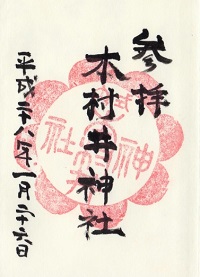 参拝
木村井神社
平成二十八年一月二十六日